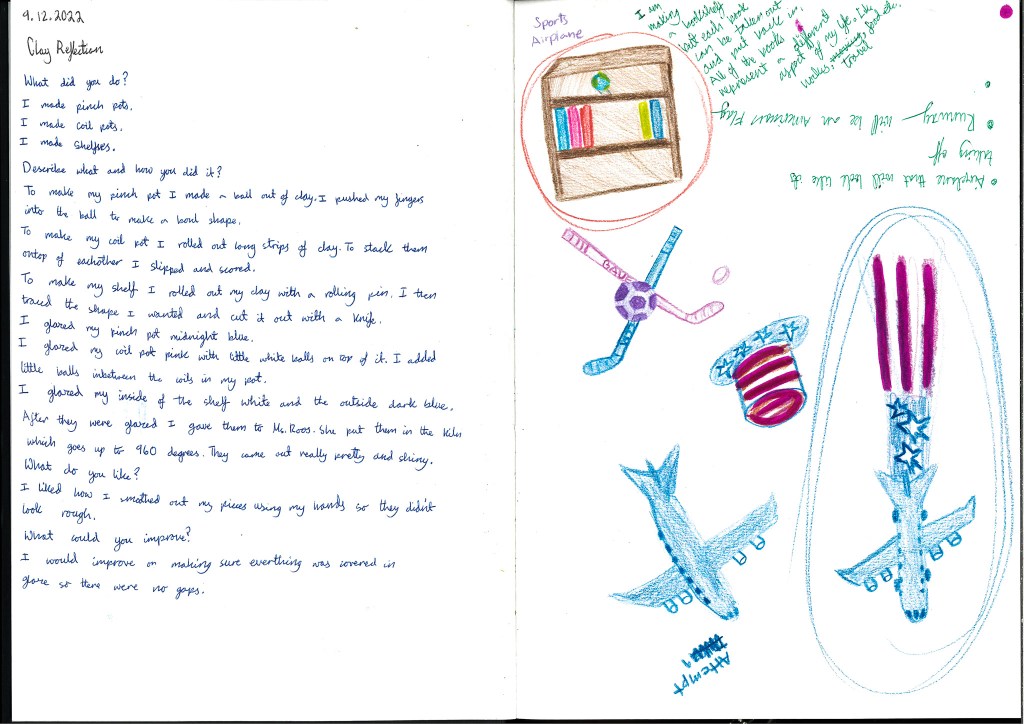 9.12.2022
Clay Reflection
What did you do?
I made pinch pots.
I made coil pots.
I made shelves.
Describe what and how you did it?
To make my pinch pot I made a ball out of clay. I pushed my fingers
into the ball to make a bowl shape.
To make my coil pot I rolled out long strips of clay. To stack them
ontop of eachother I slipped and scored.
To make my shelf I rolled out my clay with a rolling pin. I then
traced the shape I wanted and cut it out with a knife.
I glazed my pinch pot midnight blue.
I glazed my coil pot pink with little white balls on top of it. I added
little balls inbetween the coils in my pot.
I glazed my inside of the shelf white and the outside dark blue.
After they were glazed I gave them to Ms. Roos. She put them in the kiln
which goes up to 960 degrees. They came out really pretty and shiny.
What do you like?
I liked how I smothed out my pieces using my hands so they didn't
look rough.
What could you improve?
I would improve on making sure everthing was covered in
glaze so there were no gaps.
Sports
Airplane
I am
making
a bookshelf
but each book
can be taken out
and put back in.
All of the books
represent a different
aspect of my life. Like
hobbies, food etc.
travel
Runway - will be an American Flag
Airplane that will look like its
taking off
Attempt
1